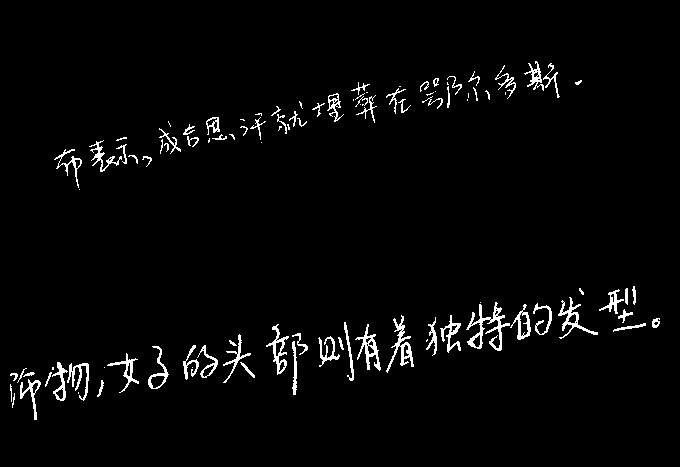 布表示,成吉思汗就埋葬在鄂尔多斯.
饰物,女子的头部则有着独特的发型。